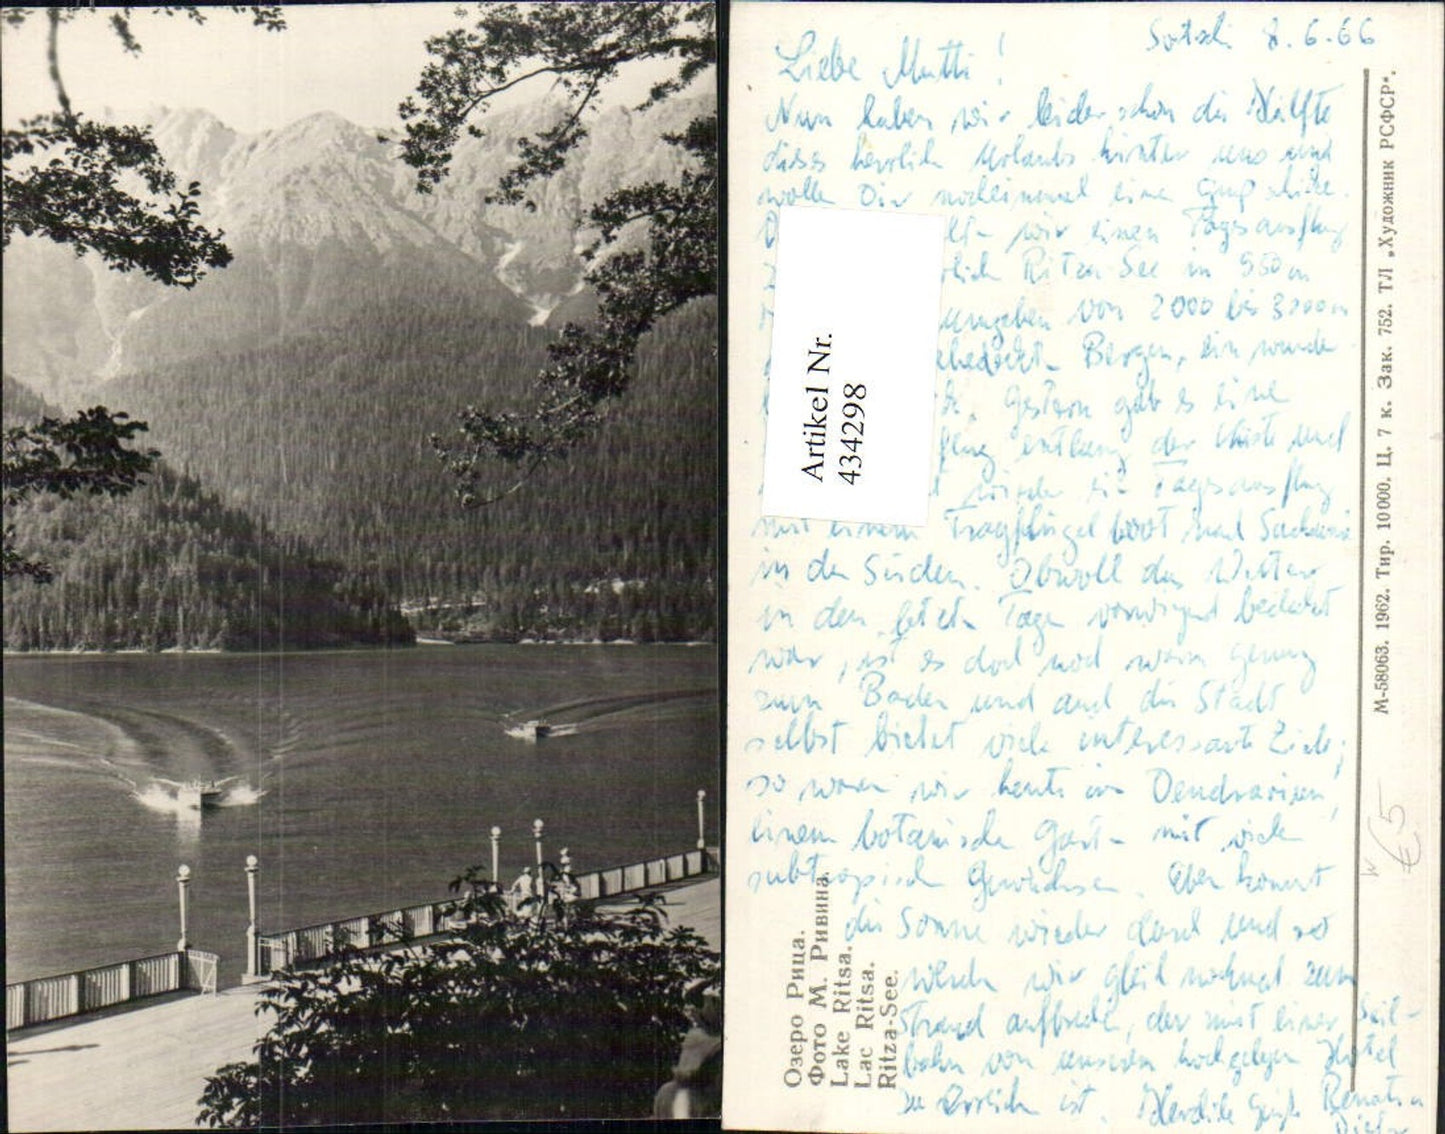 Sotschi 8.6.66
Liebe Mutti!
Nun haben wir leider schon die Hälfte
dieses herrlich Urlaubs hinter uns und
wollen Dir nocheinmal eine Gruß schicke.
wir einen Tagesausflug
Ritza-See in 950 m
umgeben von 2000 bis 3000 m
Bergen, ein wunder
Gestern gab es eine
entlang der Küste und
wieder ein Tagesausflug
mit einem Tragflügelboot nach Suchumi
in den Süden. Obwohl das Wetter
in den letzten Tagen vorwiegend bedeckt
war, ist es doch noch warm genug
zum Baden und auch die Stadt
selbst bietet viele interessante Ziele;
so waren wir heute im Dendrarium,
einem botanische Garten mit vielen
subtropisch Gewächsen. Eben kommt
die Sonne wieder durch und so
werden wir gleich nochmal zum
Strand aufbrechen, der mit einer Seil-
bahn von unserem hochgelegen Hotel
zu erreichen ist. Herzliche Grüße Renate
Artikel Nr.
434298
Озеро Рица.
Фото М. Ривина.
Lake Ritsa.
Lac Ritsa.
Ritza-See.
М-58063. 1962. Тир. 10 000. Ц. 7 к. Зак. 752. ТЛ „Художник РСФСР“.
€5